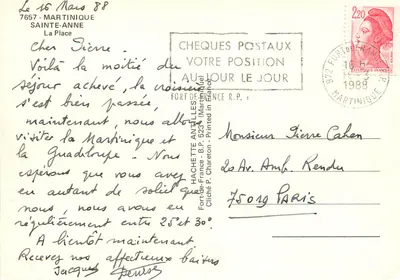 Le 16 Mars 88
7657 - MARTINIQUE
SAINTE-ANNE
La Place
Cher Pierre.
Voilà la moitié du
séjour achevé, la croisière
s'est bien passée,
maintenant, nous allons
visiter la Martinique et
la Guadeloupe. Nous
espérons que vous avez
eu autant de soleil que
nous, nous avons eu
régulièrement entre 25° et 30°.
A bientôt maintenant
Recevez nos affectueux baisers
Jacques Denise
HACHETTE ANTILLES
Fort-de-France - B.P. 5234 (Martinique)
Cliché P. Chareton - Printed in France
CHEQUES POSTAUX
VOTRE POSITION
AU JOUR LE JOUR
FORT DE FRANCE R.P.
1988
MARTINIQUE
2,20
Monsieur Pierre Cahen
20 Av. Amb. Rendu
75019 PARIS